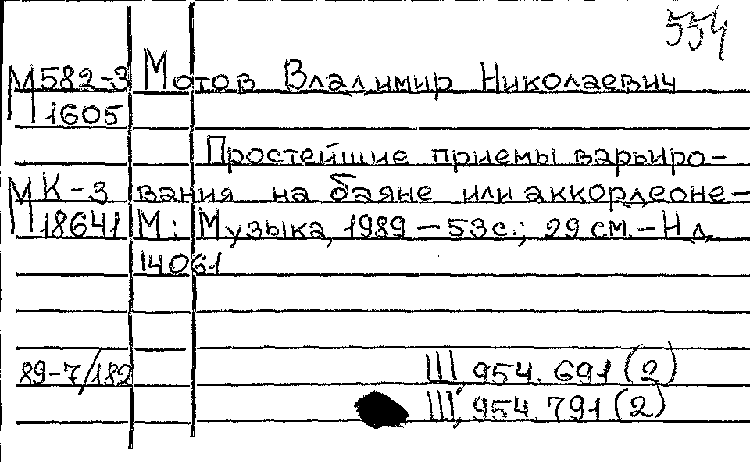 554
М 582-3 Мотов Владимир Николаевич
П 1605
Простейшие приемы варьиро-
М К-3 вания на баяне или аккордеоне-
П 18641 М: Музыка, 1989 - 53 с.; 29 см.- Н д.
14061
89-7/182 III, 954.691 (2)
III, 954.791 (2)